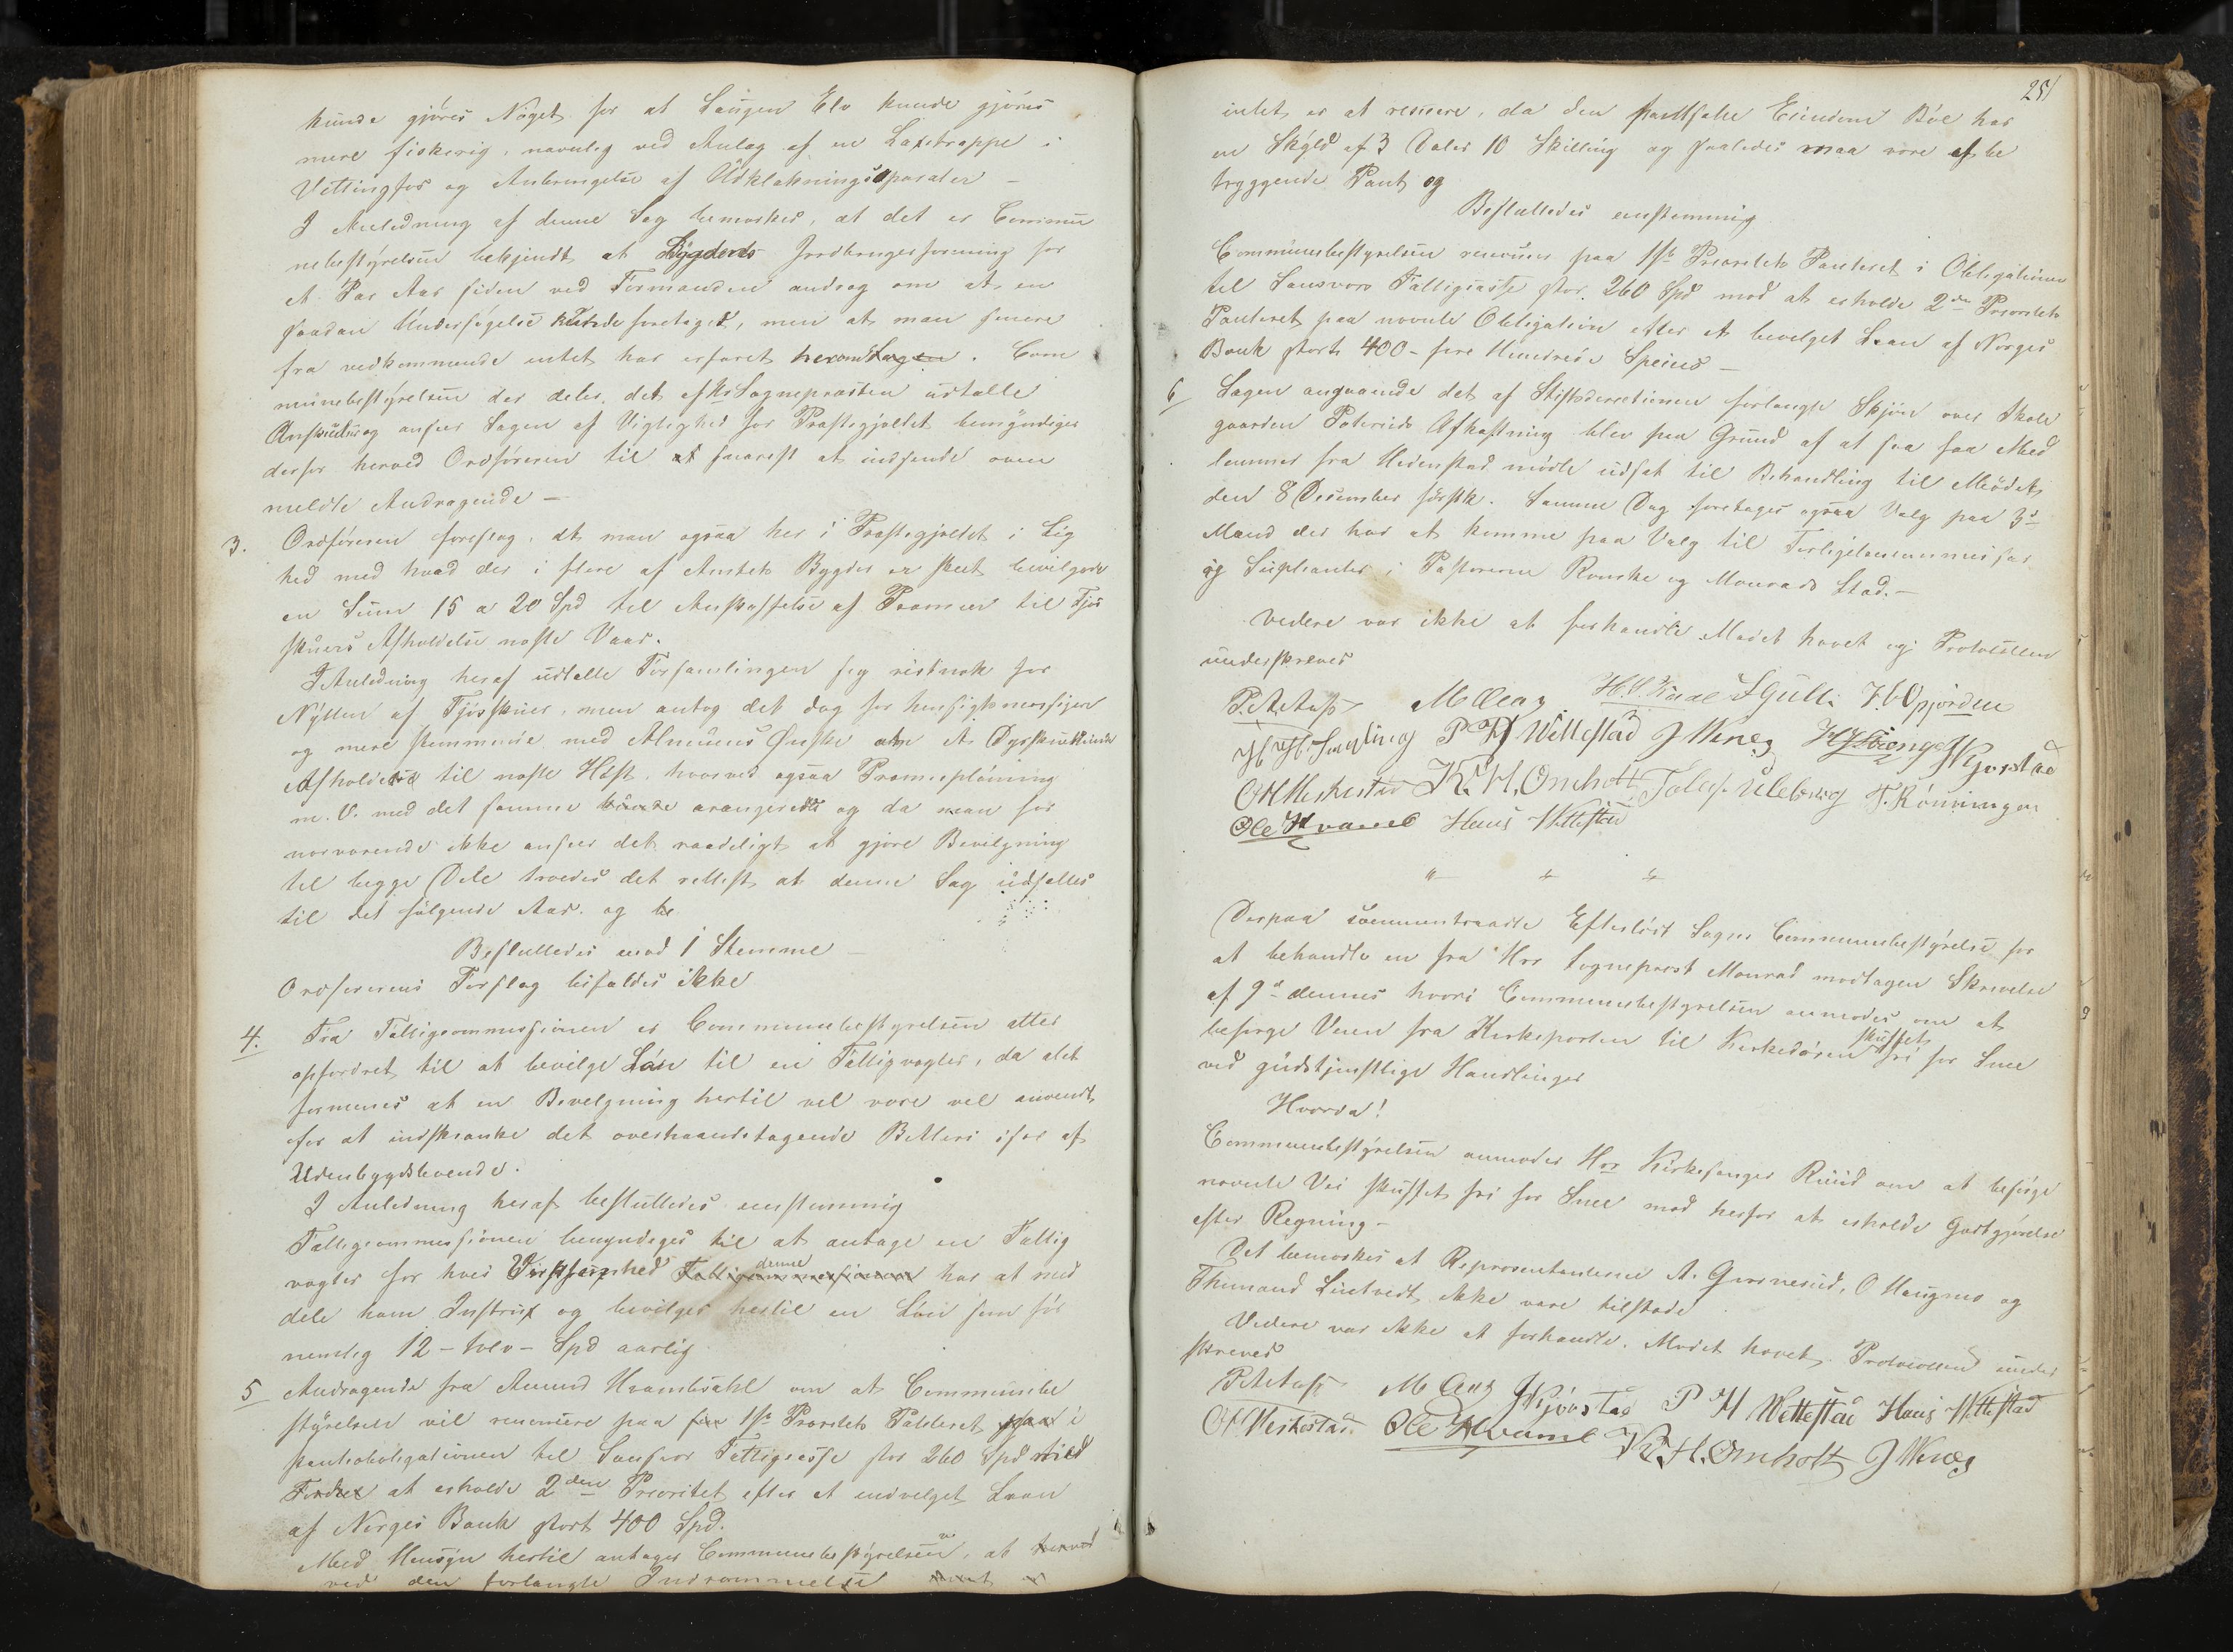 kunde gjøres Noget for at Laugen Elv kunde gjøres
mere fiskerig, navnlig ved Anlæg af en Laxetrappe i
Vittingfos og Anbringelse af Udklækningsapparater –
I Anledning af denne Sag bemærkes, at det er Commu
nebestyrelsen bekjendt at Bygdens Jordbrugsforening for
et Par Aar siden ved Formanden androg om at en
saadan Undersøgelse kunde foretages, men at man senere
fra vedkommende intet har erfaret herom. Com
munebestyrelsen der deler det af Hr Sognepræsten udtalte
Anskuelse og anseer Sagen af Vigtighed for Præstegjeldet bemyndiger
derfor herved Ordføreren til at snarest at indsende oven
meldte Andragende –
3. Ordføreren foreslog, at man ogsaa her i Præstegjeldet i Lig
hed med hvad der i flere af Amtets Bygder er skeet bevilgede
en Sum 15 a 20 Spd til Anskaffelse af Præmier til Fjøs
skuers Afholdelse næste Vaar.
I Anledning heraf udtalte Forsamlingen sig vistnok for
Nytten af Fjøsskuer, men antog det dog for hensigtsmessigere
og mere stemmende med Almuens Ønske om et Dyrskues
Afholdelse til næste Høst, hvorved ogsaa Præmiepløining
m. V. med det samme kunde arangeres og da man for
nærværende ikke anseer det raadeligt at gjøre Bevilgning
til begge Dele troedes det rettest at denne Sag udsættes
til det følgende Aar. og
Besluttedes mod 1 Stemme –
Ordførerens Forslag bifaldes ikke
4. Fra Fattigcommissionen er Communebestyrelsen atter
opfordret til at bevilge Løn til en Fattigvogter, da det
formenes at en Bevilgning hertil vel være vel anvendt
for at indskrænke det overhaandtagende Betleri især af
Udenbygdsboende.
I Anledning heraf besluttedes eenstemmig
Fattigcommissionen bemyndiges til at antage en Fattig
vogter for hvis Virksomhed denne har at med
dele ham Instrux og bevilges hertil en Løn
nemlig 12 – tolv – Spd aarlig
5 Andragende fra Amund om at Communebe
styrelsen vil renoncere paa 1ste Prioritets Panteret i
pantobligationen til Sandsvær Fattigcasse stor 260 Spd
at erholde 2den Prioritet efter et Laan
af Norges Bank stort 400 Spd.
Med Hensyn hertil antager Communebestyrelsen, at
ved den forlangte Indrømmelse
251
intet er at risikere, da den pantsatte Eiendom Bøe har
en Skyld af 3 Daler 10 Skilling og saaledes maa være af be
tryggende Pant og
Besluttedes eenstemmig
Communebestyrelsen renoncerer paa 1ste Prioritets Panteret i Obligationen
til Sandsværs Fattigcasse stor 260 Spd mod at erholde 2den Prioritets
Panteret paa nævnte Obligation efter et bevilget Laan af Norges
Bank stort 400 – fire Hundrede Specier –
6 Sagen angaaende det af Stiftsdirectionen forlangte Skjøn over Skole
gaarden Poleruds Afkastning blev paa Grund af at saa faa Med
lemmer fra Hedenstad mødte udsat til Behandling til Mødet
den 8 December førstk. Samme Dag foretages ogsaa Valg paa 3de
Mænd der har at komme paa Valg til Forligelsescommissær
og Supleanter i Pastorerne og Monrads Sted. –
Videre var ikke at forhandle. Mødet hævet og Protocollen
underskreves
P. M
P H Wettestad J Wenes
K. H. Omholt T. Rönningen
Ole Hvamb Hans Wettestad
" " "
Derpaa sammentraadte Efterløit Sogns Communebestyrelse for
at behandle en fra Hrr Sognepræst Monrad modtagen Skrivelse
af 9d dennes hvori Communebestyrelsen anmodes om at
besørge Veien fra Kirkeporten til Kirkedøren skuffet fri for Snee
ved gudstjenstlige Handlinger
Hvorda!
Communebestyrelsen anmoder Hrr Kirkesanger Ruud om at besørge
nævnte Vei skuffet fri for Snee mod herfor at erholde Godtgjørelse
efter Regning –
Det bemærkes at Repræsentanterne A. , O Haugmo og
Lindtvedt ikke vare tilstede
Videre var ikke at forhandle. Mødet hævet. Protocollen under
skreves
P H Wettestad Hans Wettestad
Ole Hvamb K. H. Omholt J Wenes